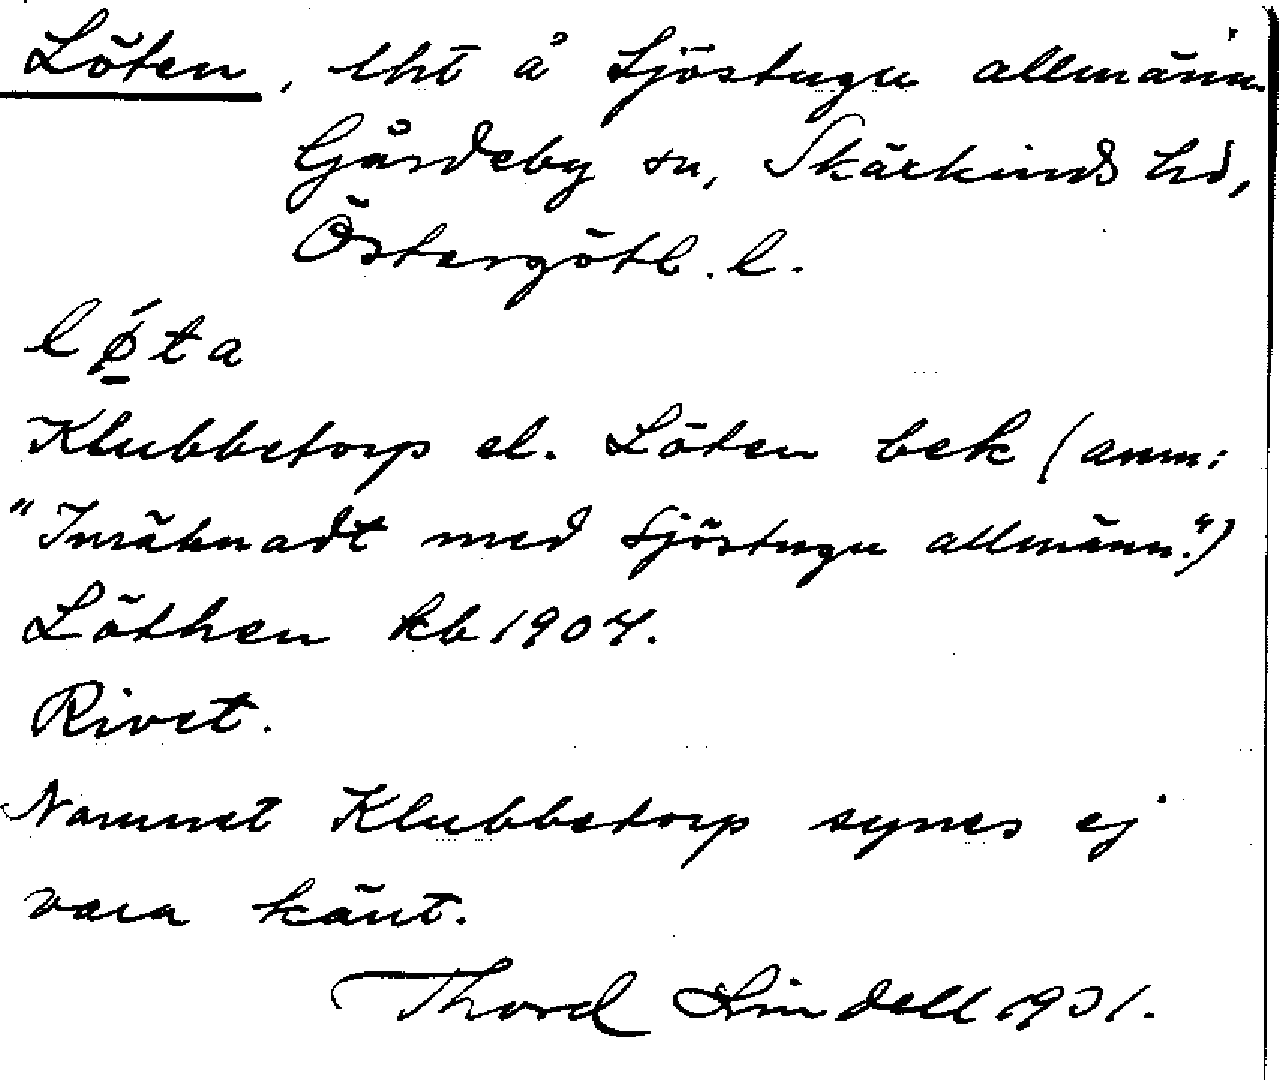 Löten, lht å Sjöstugu allmänn.
Gårdeby sn, Skärkinds hd,
Östergötl. l.
lǿ̱ta
Klubbetorp el. Löten bek (anm:
"Inräknadt med Sjöstugu allmänn.")
Löthen kb 1904.
Rivet.
Namnet Klubbetorp synes ej
vara känt.
Thord Lindell 1931.